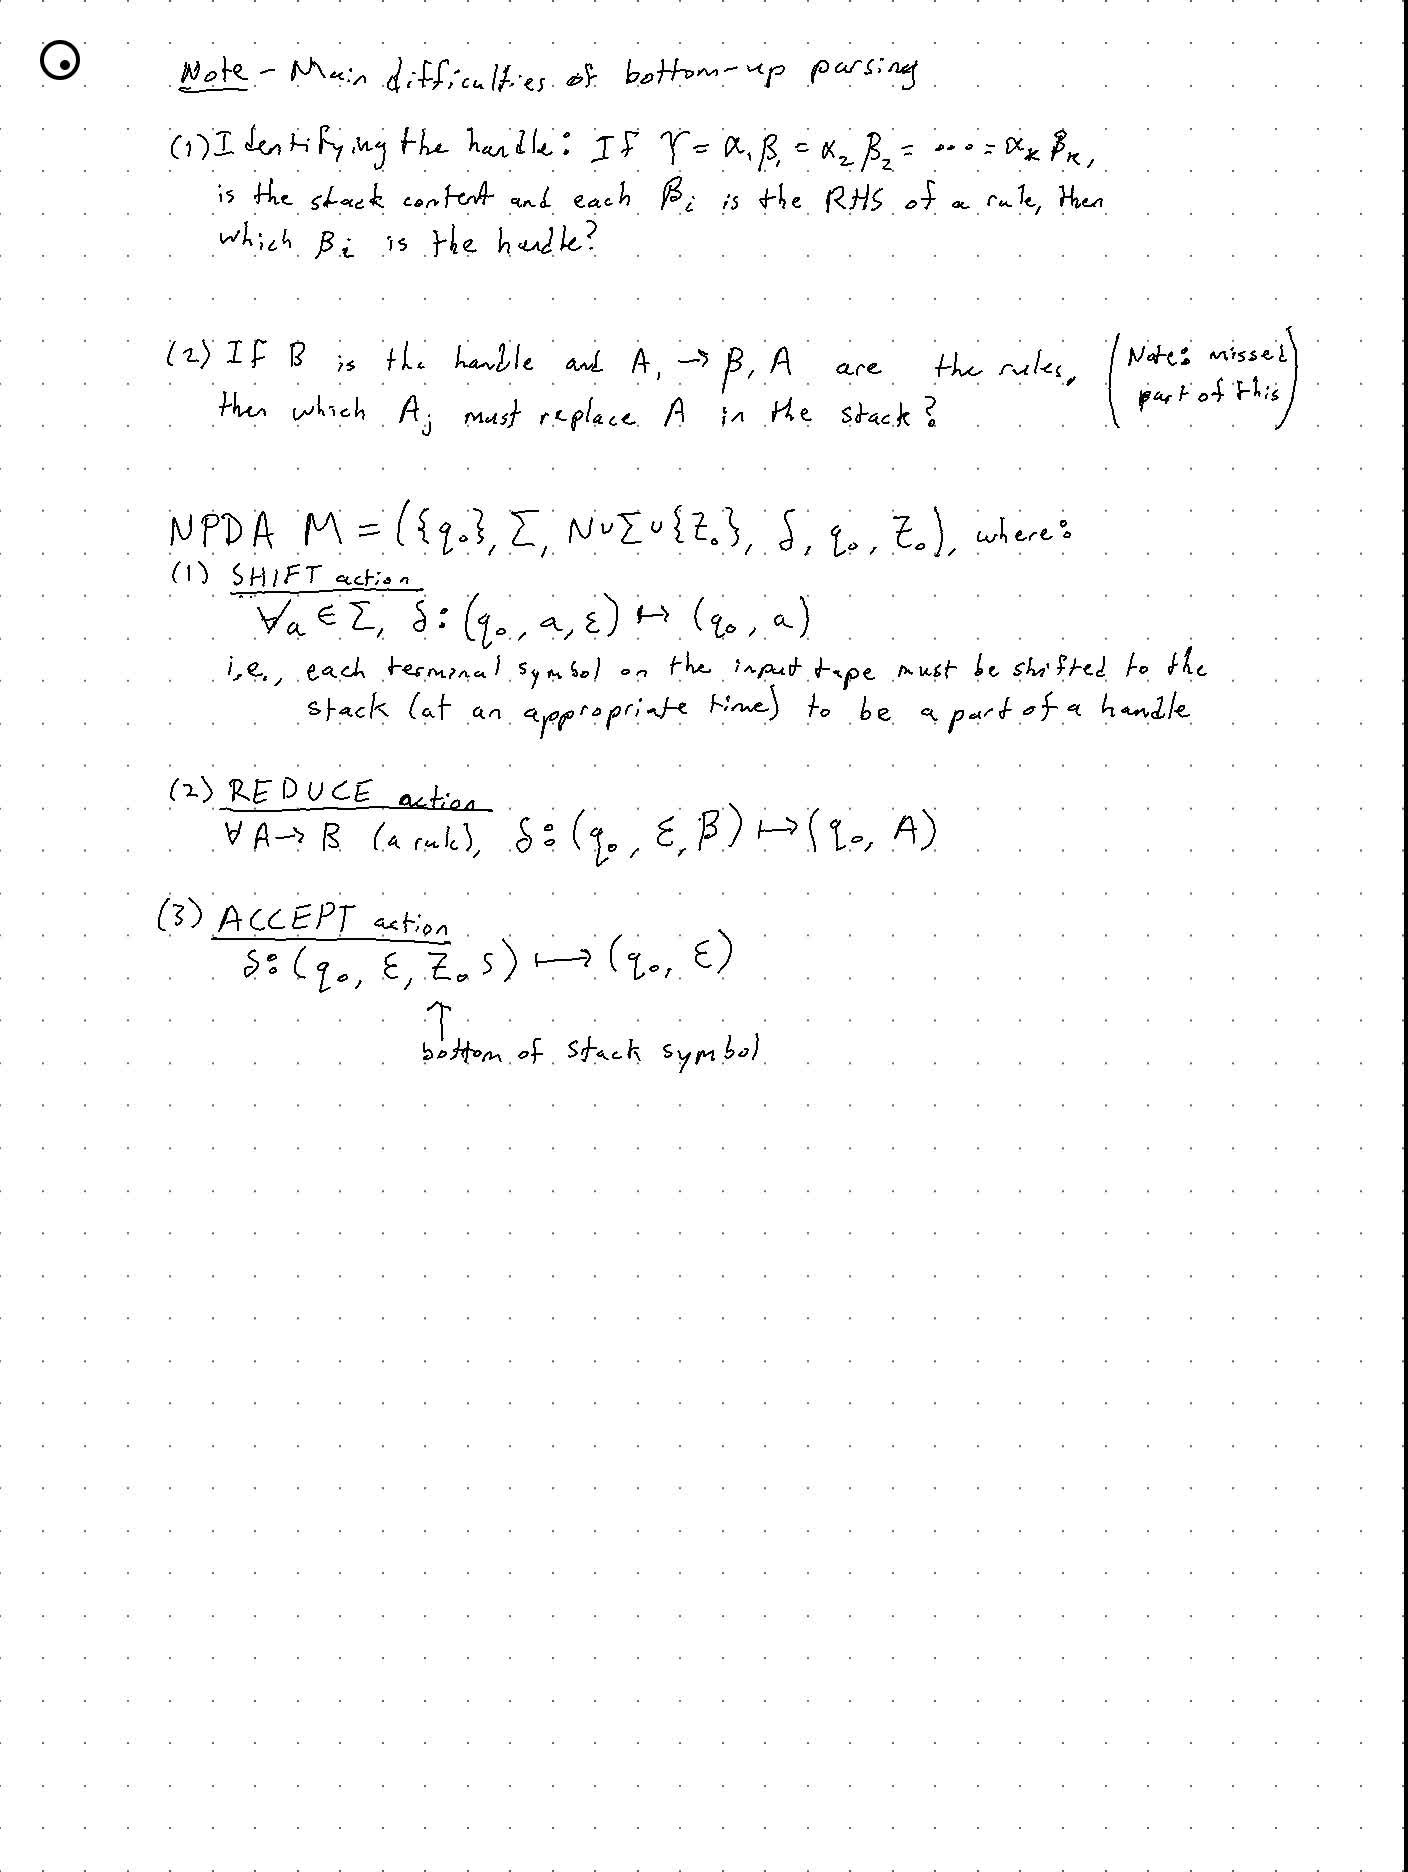 Note - Main difficulties of bottom-up parsing
(1) Identifying the handle: If γ = α₁β₁ = α₂β₂ = ... = αₖβₖ,
is the stack content and each βᵢ is the RHS of a rule, then
which βᵢ is the handle?
(2) If B is the handle and A₁ → β, A are the rules, (Note: missed
part of this)
then which Aⱼ must replace A in the stack?
NPDA M = ({q₀}, Σ, N∪Σ∪{Z₀}, δ, q₀, Z₀), where:
(1) SHIFT action
∀a ∈ Σ, δ: (q₀, a, ε) ↦ (q₀, a)
i.e., each terminal symbol on the input tape must be shifted to the
stack (at an appropriate time) to be a part of a handle
(2) REDUCE action
∀ A → B (a rule), δ: (q₀, ε, β) ↦ (q₀, A)
(3) ACCEPT action
δ: (q₀, ε, Z₀ S) ↦ (q₀, ε)
↑
bottom of stack symbol